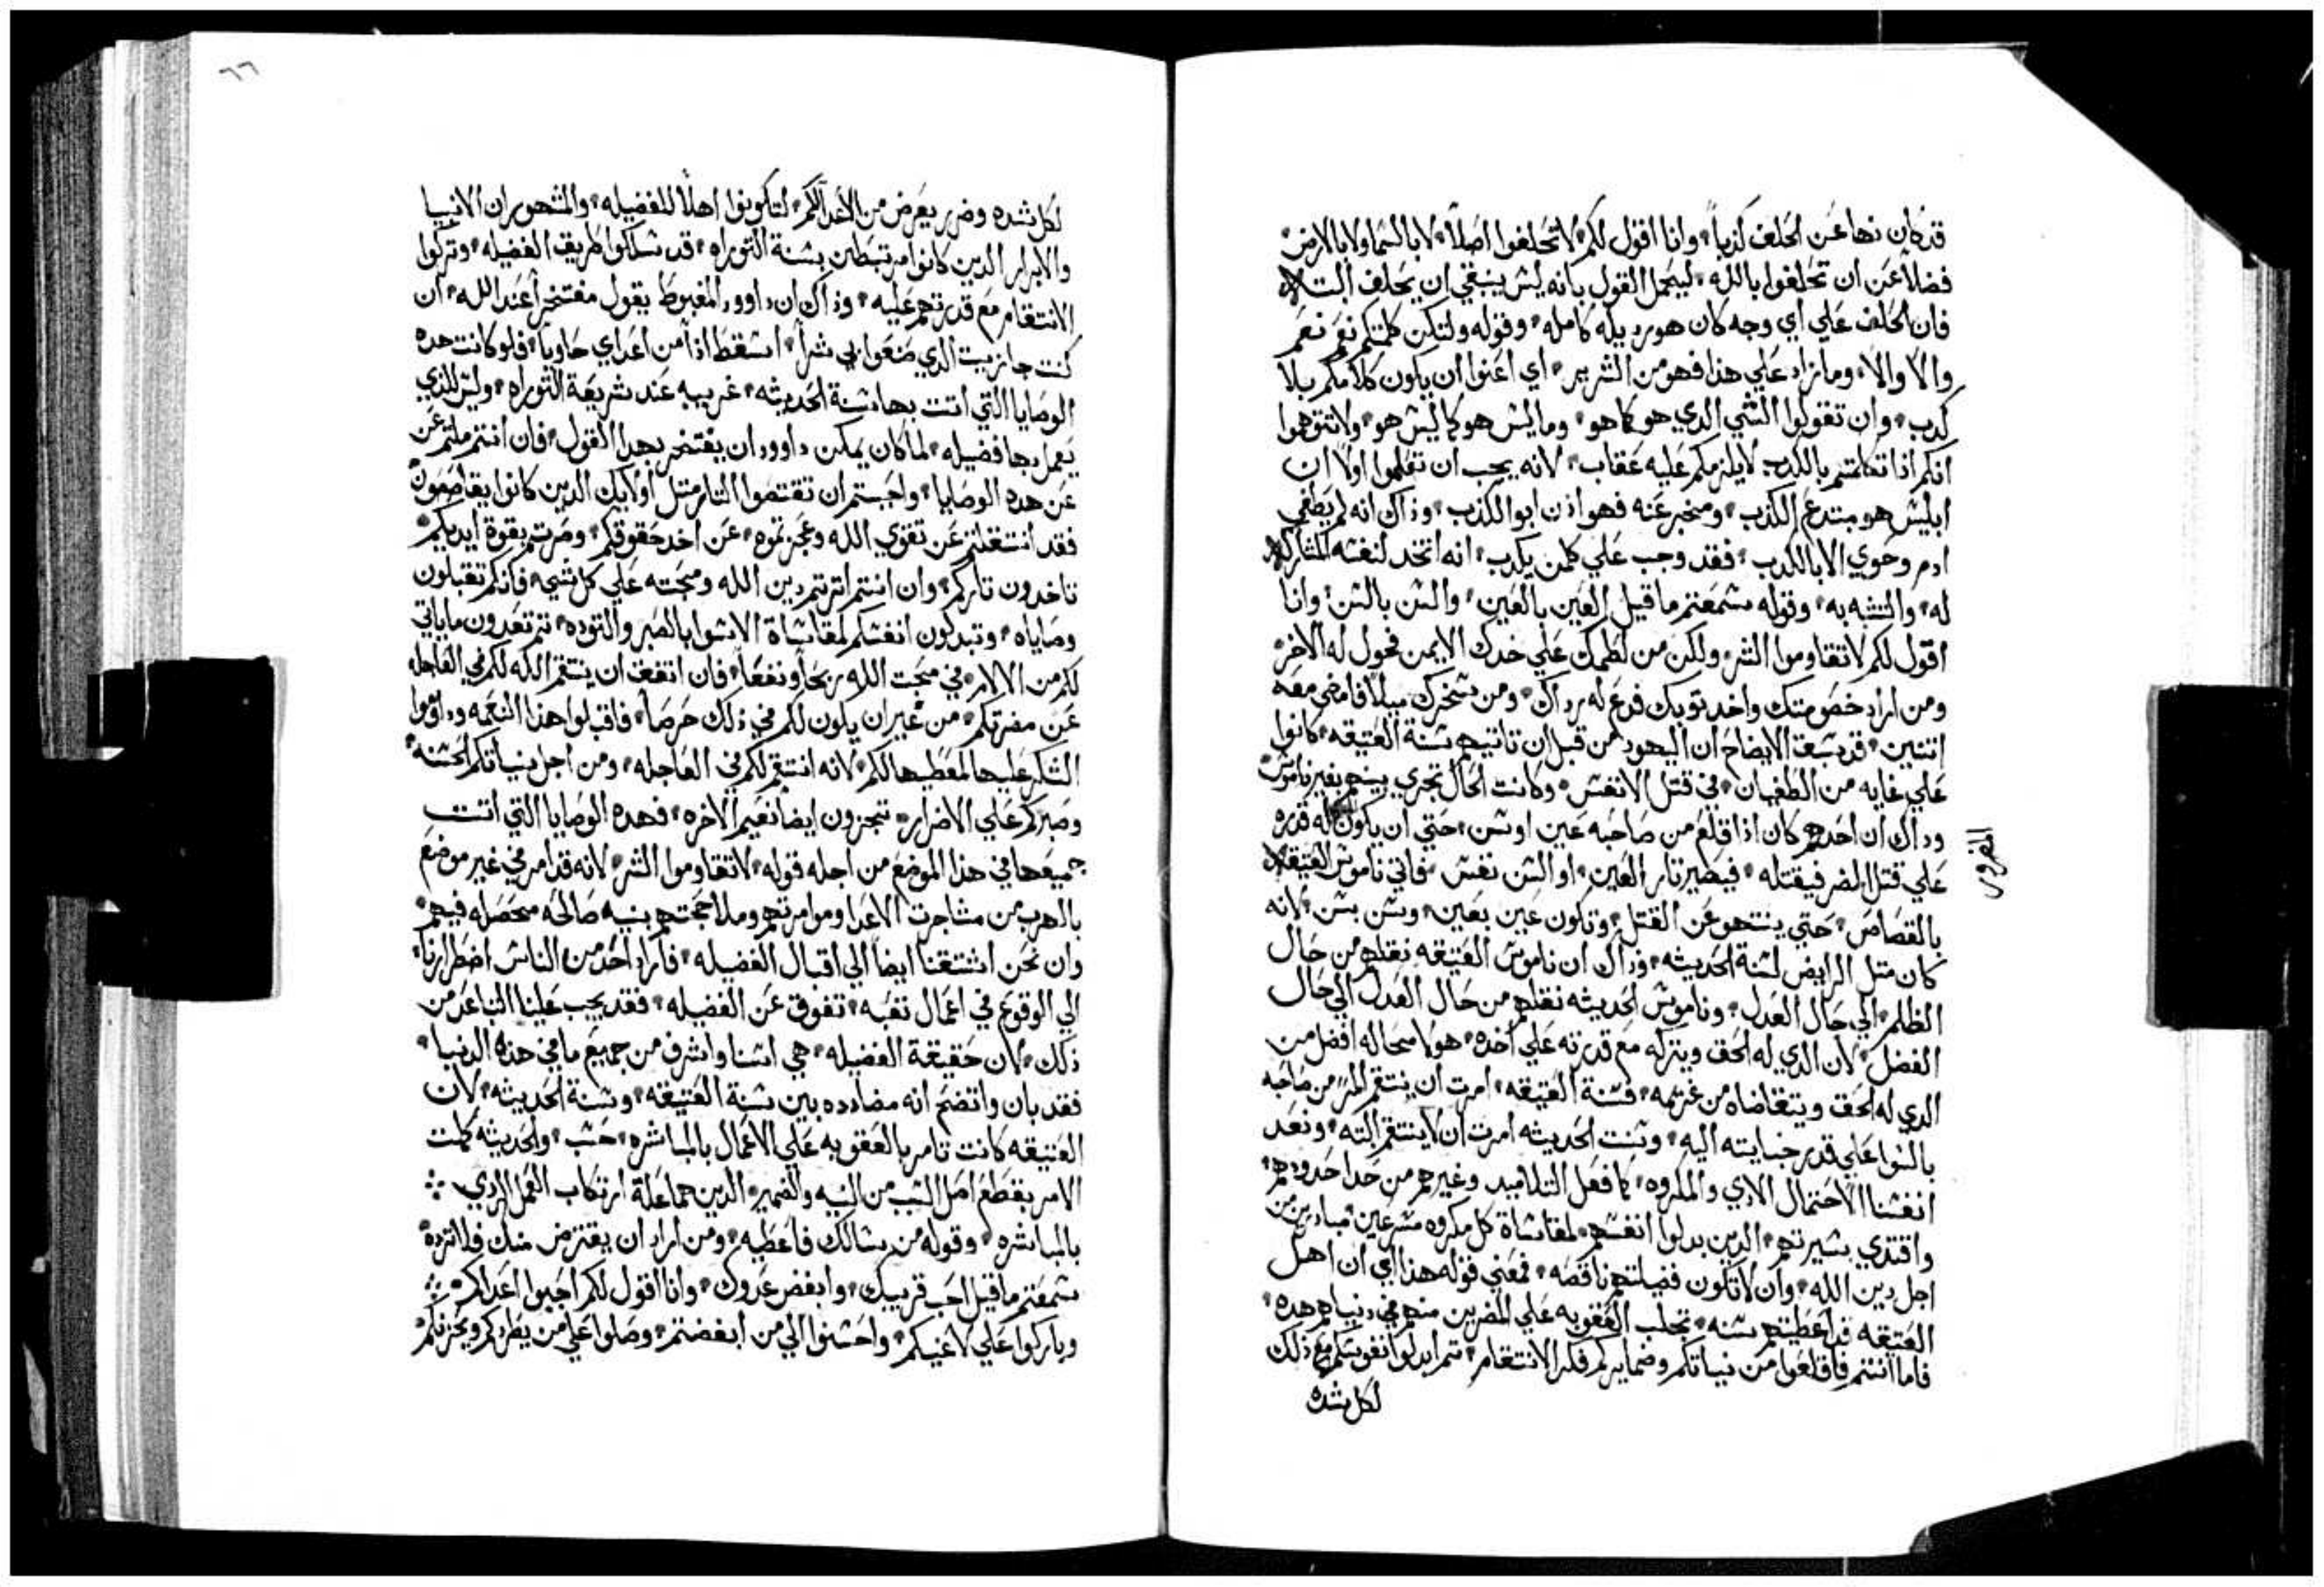 قد كان نها عن الحلف كذباً وانا اقول لكم لا تحلفوا اصلاً لا بالسما ولا بالارض
فضلاً عن ان تحلفوا بالله ليحمل القول بانه ليس ينبغي ان يحلف البته
فان الحلف علي اي وجه كان هو رديله كامله وقوله ولتكن كلمتكم نعم نعم
والا والا وما زاد علي هذا فهو من الشرير اي اعنوا ان يكون كلامكم بلا
كدب وان تقولوا الشي الدي هو كما هو وما ليس هو كما ليس هو ولا تتوهموا
انكم اذا تكلمتم بالكدب لا يلزمكم عليه عقاب لانه يجب ان تعلموا اولاً ان
ابليس هو مبتدع الكذب ومخبر عنه فهو اذن ابو الكذب وذاك انه لم يطغي
ادم وحوي الا بالكدب فقد وجب علي كلمن يكدب انه اتخد لنفسه المشاركه
له والتشبه به وقوله سمعتم ما قيل العين بالعين والسن بالسن وانا
اقول لكم لا تقاوموا الشر ولكن من لطمك علي خدك الايمن فحول له الاخر
ومن اراد خصومتك واخد توبك فدع له رداك ومن سخرك ميلاً فامضي معه
اتنين قد سبقت الايضاح ان اليهود من قبل ان تاتيهم سنة العتيقه كانوا
علي غايه من الطغيان في قتل الانفس وكانت الحال تجري بينهم بغير ناموس
وداك ان احدهم كان اذا قلع من صاحبه عين او سن حتي ان يكون له قدره
علي قتل المضر فيقتله فيصير تار العين او السن نفس فاتي ناموس العتيقه
بالقصاص حتي ينتهو عن القتل وتكون عين بعين وسن بسن لانه
كان متل الرايض لسنة الحديثه وذاك ان ناموس العتيقه نقلهم من حال
الظلم الي حال العدل وناموس الحديثه نقلهم من حال العدل الي حال
الفضل لان الدي له الحق ويتركه مع قدرته علي اخده هو لا محاله افضل من
الدي له الحق ويتقاضاه من غريمه فسنة العتيقه امرت ان ينتقم المرً من صاحبه
بالسوا علي قدر جنايته اليه وسنت الحديثه امرت ان لا ينتقم البته ونعد
انفسنا لاحتمال الادي والمكروه كما فعل التلاميد وغيرهم من حدا حدودهم
واقتدي بسيرتهم الدين بدلوا انفسهم لمقاساة كل مكروه مسرعين مبادرين من
اجل دين الله وان لا تكون فضيلتهم ناقصه فمعني قوله هذا اي ان اهل
العتيقه قد اعطيتهم سنه تجلب العقوبه علي المضرين منهم في دنياهم هده
فاما انتم فاقلعوا من نياتكم وضمايركم فكر الانتقام تم ابدلوا نفوسكم مع ذلك
لكل شده
الفردوس
٦٦
لكل شده وضرر يعرض من الاعدا لكم لتكونوا اهلاً للفضيله والمشهور ان الانبيا
والابرار الدين كانوا مرتبطين بسنة التوراه قد سلكوا طريق الفضيله وتركوا
الانتقام مع قدرتهم عليه وذاك ان داوود المغبوط يقول مفتخراً عند الله ان
كنت جازيت الدي صنعوا بي شراً اسقط اذاً من اعداي خاوياً فلو كانت هده
الوصايا التي اتت بها سنة الحديثه غريبه عند شريعة التوراه وليس للذي
يعمل بها فضيله لما كان يمكن داوود ان يفتخر بهدا القول فان انتم ملتم عن
عن هده الوصايا واحببتم ان تقتصوا التار متل اولايك الدين كانوا يقاصصون
فقد انتقلتم عن تقوي الله وعجزتموه عن اخد حقوقكم وصرتم بقوة ايديكم
تاخدون تاركم وان انتم اترتم دين الله ومحبته علي كل شي فانكم تقبلون
وصاياه وتبدلون انفسكم لمقاساة الاسوا بالصبر والتوده تم تعدون ما ياتي
لكم من الالام في محبت الله ربحاً ونفعاً فان اتفق ان ينتقم الله لكم في العاجله
عن مضرتكم من غير ان يكون لكم في ذلك حرصاً فاقبلوا هذا النعمه وداوموا
الشكر عليها لمعطيها لكم لانه انتقم لكم في العاجله ومن اجل نياتكم الحسنه
وصبركم علي الاضرار تجزون ايضاً نعيم الاخره فهده الوصايا التي اتت
جميعها في هذا الموضع من اجله قوله لا تقاوموا الشر لانه قد امر في غير موضع
بالهرب من مشاجرت الاعدا وموامرتهم وملاججتهم بنيه صالحه متحصله فيهم
وان نحن استتقنا ايضاً الي اقبال الفضيله فاراد احد من الناس اضطرارنا
الي الوقوع في اعمال تعبه تفوق عن الفضيله فقد يجب علينا التباعد من
ذلك لان حقيقة الفضيله هي اسنا واشرف من جميع ما في هذه الدنيا
فقد بان واتضح انه مضادده بين سنة العتيقه وسنة الحديثه لان
العتيقه كانت تامر بالعقوبه علي الاعمال بالمباشره حسب والحديثه كملت
الامر بقطع اصل السبب من النيه والضمير الدين هما علة ارتكاب الفعل الردي
بالمباشره وقوله من سالك فاعطيه ومن اراد ان يقترض منك فلا ترده
سمعتم ما قيل احب قريبك وابغض عدوك وانا اقول لكم احبوا اعداكم
وباركوا علي لاعنيكم واحسنوا الي من ابغضتم وصلوا علي من يطردكم ويحزنكم